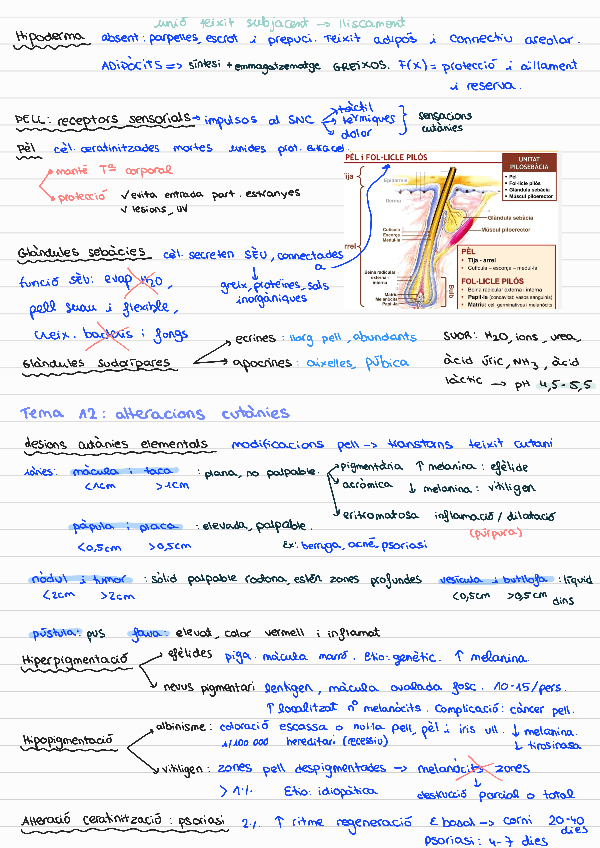 unió teixit subjacent → lliscament
Hipoderma absent: parpelles, escrot i prepuci. Teixit adipós i connectiu areolar.
ADIPÒCITS => síntesi + emmagatzematge GREIXOS. F(x) = protecció i aïllament
i reserva.
PELL: receptors sensorials → impulsos al SNC
tàctil
tèrmiques
dolor
sensacions
cutànies
Pèl cèl. ceratinitzades mortes unides prot. extracel.
manté Tª corporal
protecció ✓ evita entrada part. estranyes
✓ lesions, UV
PÈL I FOL·LICLE PILÓS
UNITAT
PILOSEBÀCIA
• Pèl
• Fol·licle pilós
• Glàndula sebàcia
• Múscul piloerector
Tija
Epidermis
Derma
Glàndula sebàcia
Múscul piloerector
Cutícula
Escorça
Medul·la
Arrel
Beina radicular
externa
interna
Matriu
Melanòcits
Papil·la
Bulb
PÈL
• Tija - arrel
• Cutícula – escorça – medul·la
FOL·LICLE PILÓS
• Beina radicular externa i interna
• Papil·la (concavitat vasos sanguinis)
• Matriu: cèl. germinatives i melanòcits
Glàndules sebàcies cèl. secreten SÈU, connectades
a
funció sèu: evap H2O,
greix, proteïnes, sals
inorgàniques
pell suau i flexible,
creix. bacteris i fongs
Glàndules sudorípares
ecrines: llarg pell, abundants
apocrines: aixelles, púbica
SUOR: H2O, ions, urea,
àcid úric, NH3, àcid
làctic → pH 4,5-5,5
Tema 12: alteracions cutànies
Lesions cutànies elementals modificacions pell → transtorns teixit cutani
1àries: màcula i taca: plana, no palpable.
<1cm >1cm
pigmentària ↑ melanina: efèlide
acròmica ↓ melanina: vitiligen
eritematosa inflamació / dilatació
(púrpura)
pàpula i placa: elevada, palpable.
<0,5cm >0,5cm Ex: berruga, acné, psoriasi
nòdul i tumor: sòlid palpable rodona, estén zones profundes vesícula i butllofa: líquid
<2cm >2cm <0,5cm >0,5cm dins
pústula: pus fava: elevat, color vermell i inflamat
Hiperpigmentació
efèlides piga. màcula marró. Etio: genètic. ↑ melanina.
nevus pigmentari lentigen, màcula ovalada fosc. 10-15/pers.
↑ localitzat nº melanòcits. Complicació: càncer pell.
Hipopigmentació
albinisme: coloració escassa o nul·la pell, pèl i iris ull. ↓ melanina.
1/100 000 hereditari (recessiu) ↓ tirosinasa
vitiligen: zones pell despigmentades → melanòcits zones
>1% Etio: idiopàtica destrucció parcial o total
Alteració ceratinització: psoriasi 2% ↑ ritme regeneració E basal → corni 20-40
dies
psoriasi: 4-7 dies